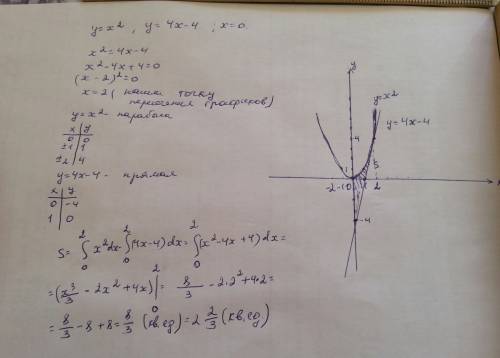 y=x² , y=4x-4 ; x=0.
x²=4x-4
x²-4x+4=0
(x-2)²=0
x=2 (нашли точку
пересечения графиков)
y=x² - парабола
x | y
0 | 0
±1 | 1
±2 | 4
y=4x-4 - прямая
x | y
0 | -4
1 | 0
S = ∫₀² x²dx - ∫₀² (4x-4)dx = ∫₀² (x²-4x+4)dx =
= (x³/3 - 2x² + 4x)|₀² = 8/3 - 2·2² + 4·2 =
= 8/3 - 8 + 8 = 8/3 (кв.ед) = 2 2/3 (кв.ед)
y
y=x²
y=4x-4
4
S
1
-2 -1 0 1 2
x
-4